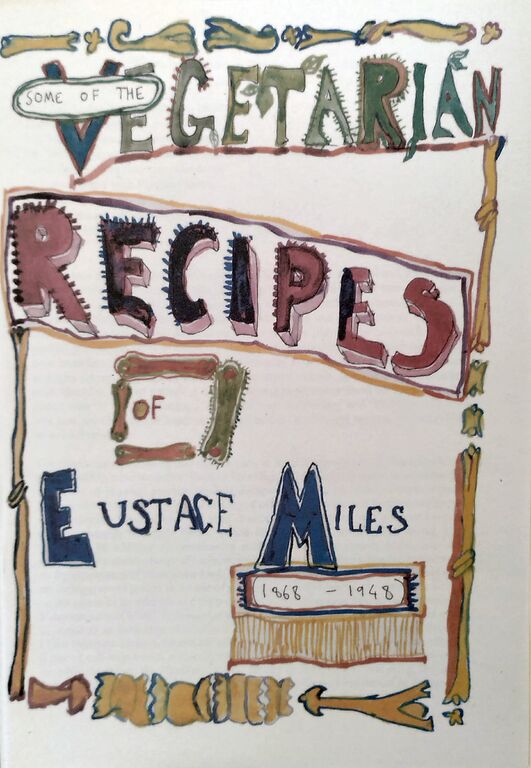 SOME OF THE
VEGETARIAN
RECIPES
OF
EUSTACE MILES
1868 - 1948